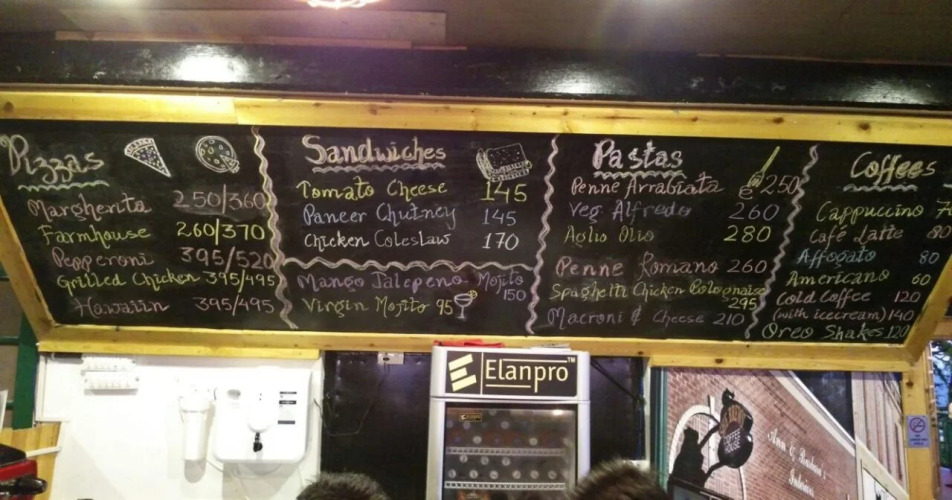 Pizzas
Margherita 250/360
Farmhouse 260/370
Pepperoni 395/520
Grilled Chicken 395/495
Hawaiin 395/495
Sandwiches
Tomato Cheese 145
Paneer Chutney 145
Chicken Coleslaw 170
Mango Jalepeno Mojito
150
Virgin Mojito 95
Pastas
Penne Arrabiata 250
Veg Alfredo 260
Aglio Olio 280
Penne Romano 260
Spaghetti Chicken Bolognaise
295
Macroni & Cheese 210
Coffees
Cappuccino
Café Latte 80
Affogato 80
Americano 60
Cold Coffee 120
(with icecream) 140
Oreo Shakes 120
Elanpro™
COFFEE
HOUSE